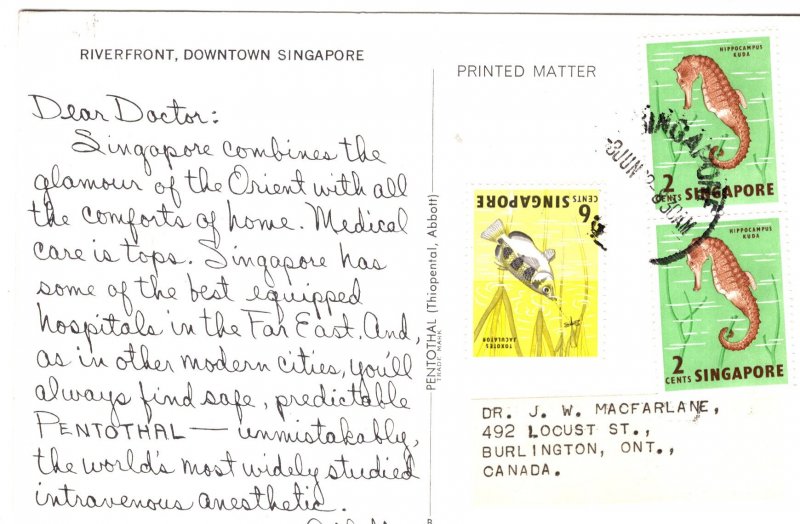 RIVERFRONT, DOWNTOWN SINGAPORE
Dear Doctor:
Singapore combines the
glamour of the Orient with all
the comforts of home. Medical
care is tops. Singapore has
some of the best equipped
hospitals in the Far East. And,
as in other modern cities, you'll
always find safe, predictable
PENTOTHAL — unmistakably,
the world's most widely studied
intravenous anesthetic.
PENTOTHAL (Thiopental, Abbott)
TRADE MARK
B
PRINTED MATTER
HIPPOCAMPUS
KUDA
2
CENTS SINGAPORE
HIPPOCAMPUS
KUDA
2
CENTS SINGAPORE
6
CENTS
SINGAPORE
TOXOTES
JACULATOR
SINGAPORE
JUN
30AM
DR. J. W. MACFARLANE,
492 LOCUST ST.,
BURLINGTON, ONT.,
CANADA.